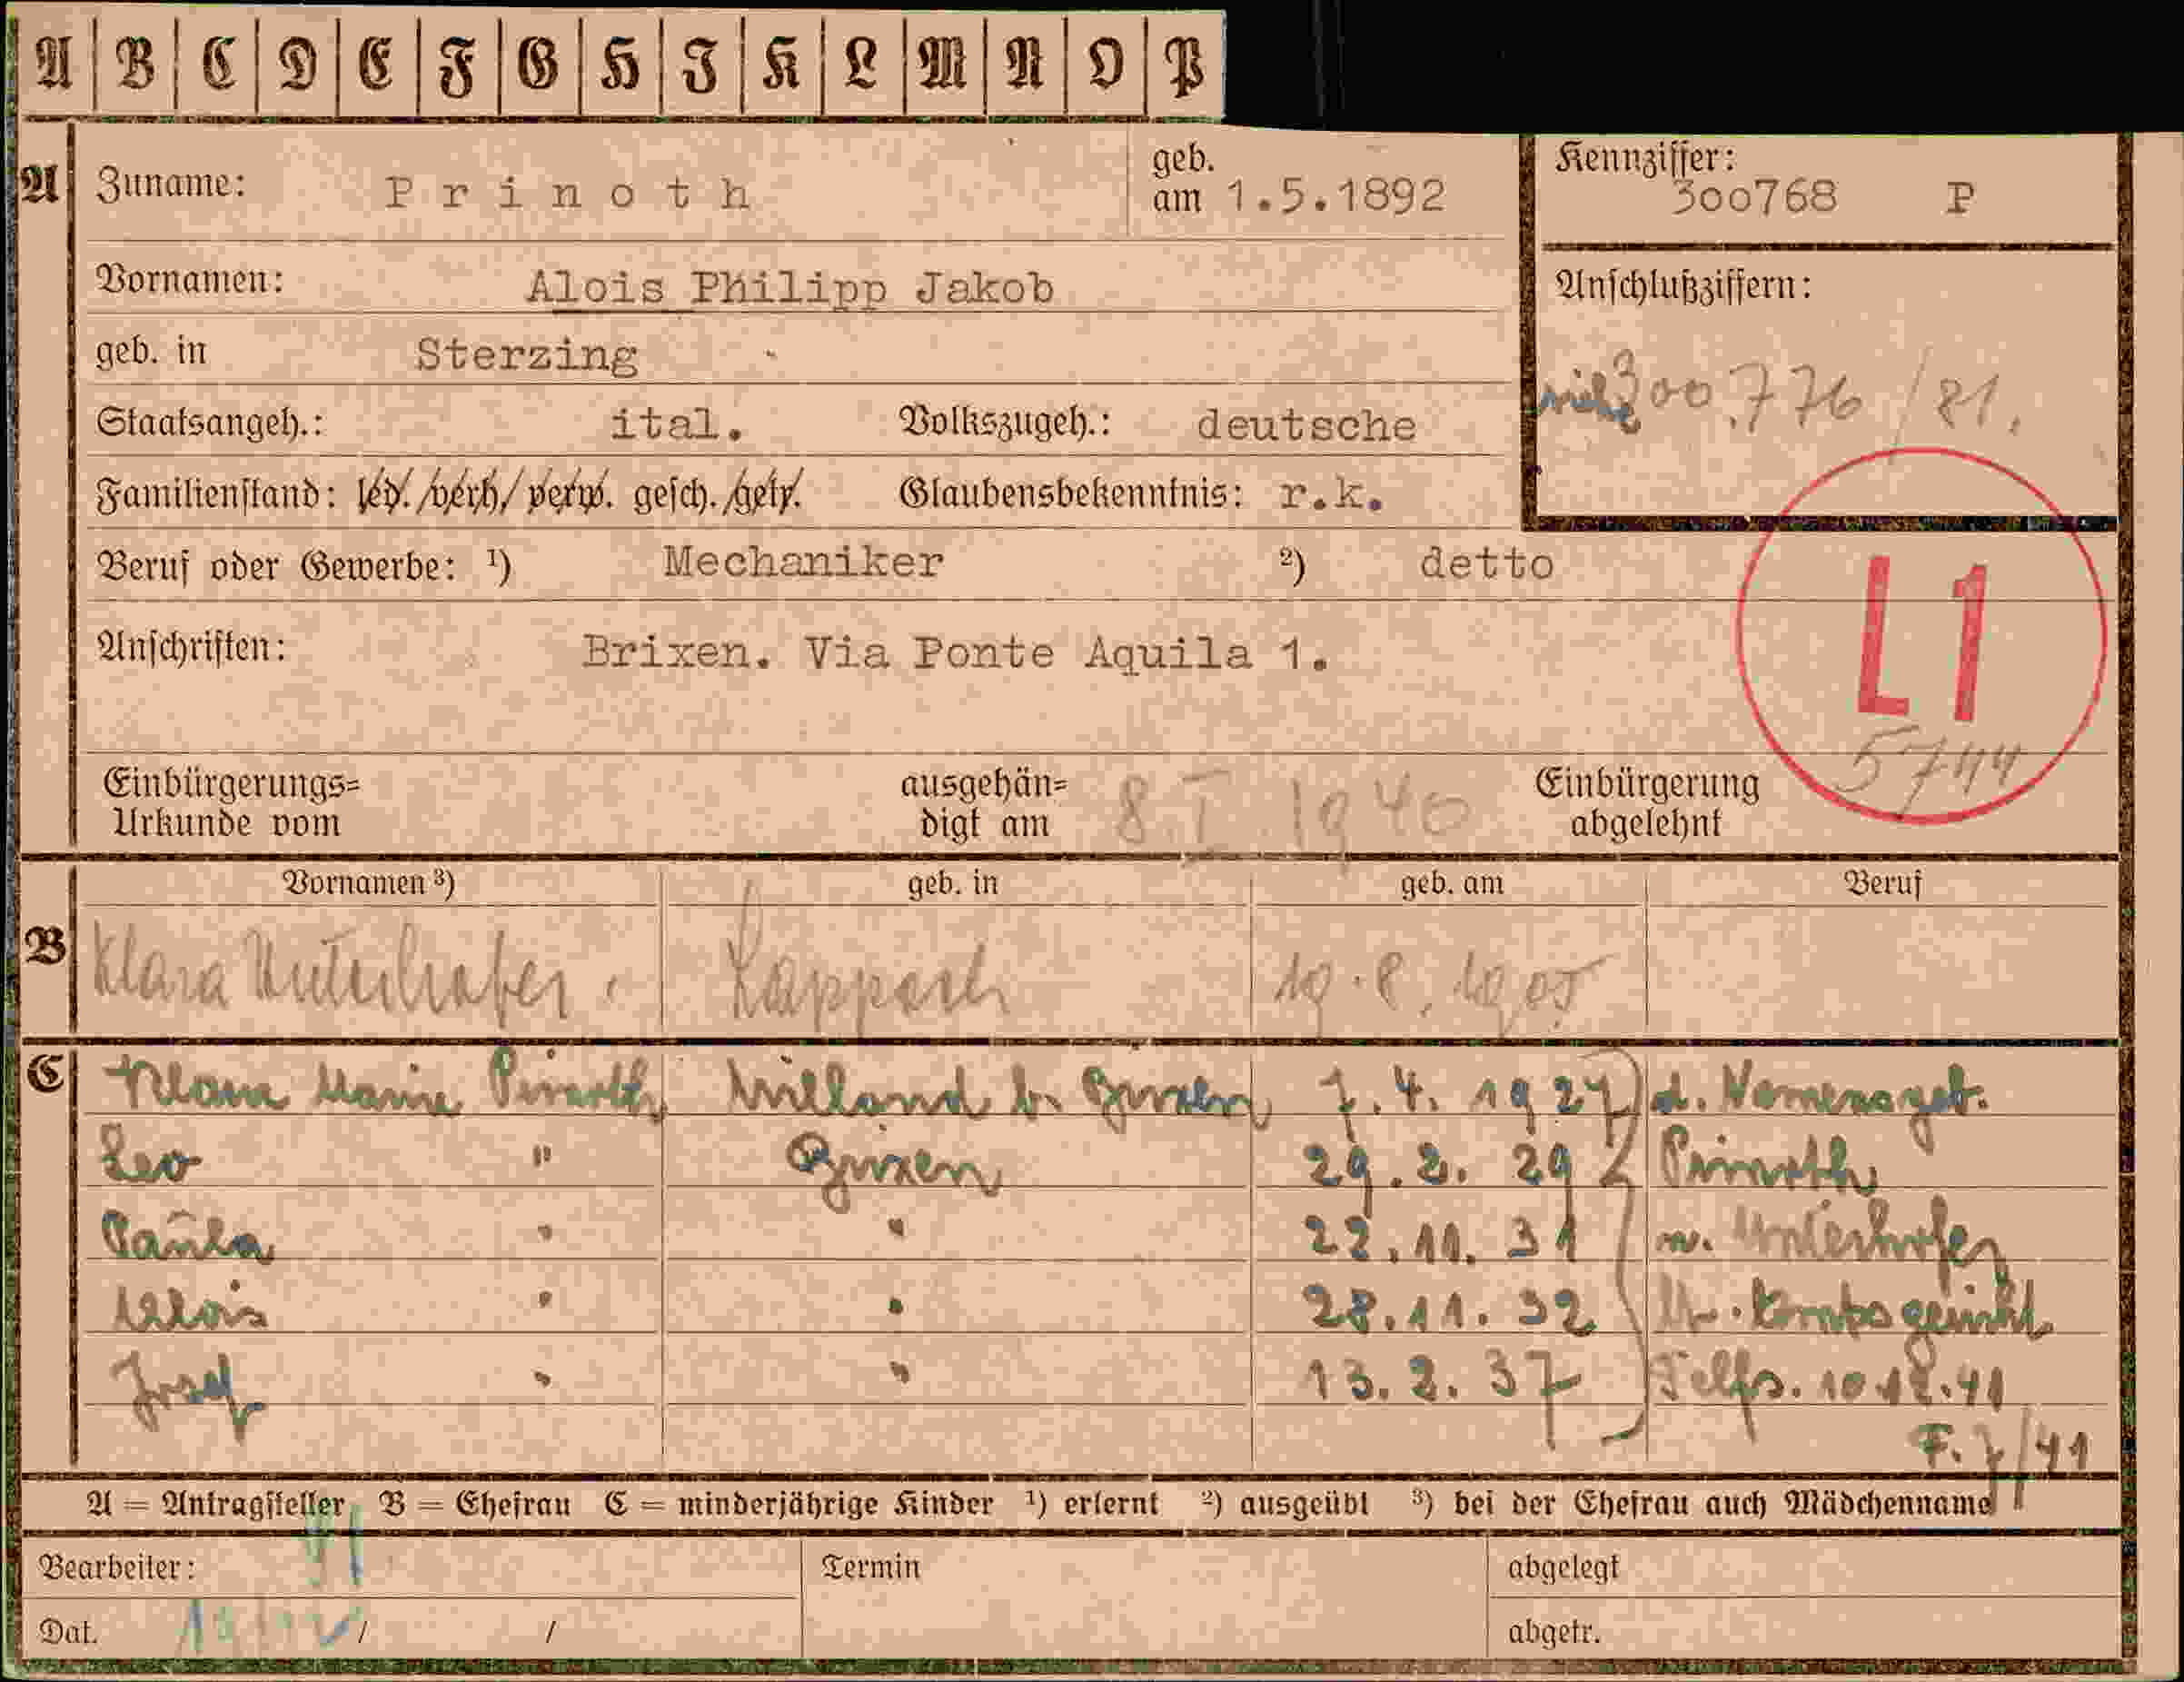 A B C D E F G H I K L M N O P
A Zuname: Prinoth geb. am 1.5.1892 Kennziffer: 300768 P
Vornamen: Alois Philipp Jakob Anschlußziffern:
geb. in Sterzing
siehe 300.776/81.
Staatsangeh.: ital. Volkszugeh.: deutsche
Familienstand: led./verh/verw. gesch./getr. Glaubensbekenntnis: r.k.
Beruf oder Gewerbe: ¹) Mechaniker ²) detto
L1
Anschriften: Brixen. Via Ponte Aquila 1.
5744
Einbürgerungs=Urkunde vom ausgehän=digt am 8.I.1940 Einbürgerung abgelehnt
Vornamen ³) geb. in geb. am Beruf
B Klara Unterhofer, 19.8.1905
C Klara Marie Prinoth Milland b. Brixen 7.4.1927 d. Namensgeb.
Leo " Brixen 29.2.29 Prinoth
Paula " " 22.11.31 w. Unterhofer
Alois " " 28.11.32
Josef " " 13.2.37 Telfs. 10.12.41
F. 7/41
A = Antragsteller B = Ehefrau C = minderjährige Kinder ¹) erlernt ²) ausgeübt ³) bei der Ehefrau auch Mädchenname
Bearbeiter: Termin abgelegt
Dat. / / abgetr.